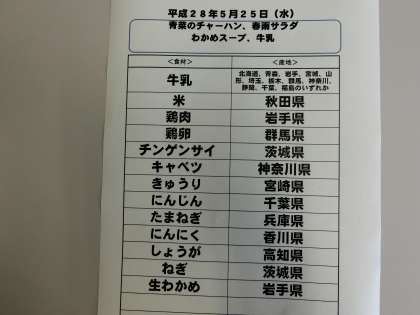 平成28年5月25日(水)
青菜のチャーハン、春雨サラダ
わかめスープ、牛乳
<食材> <産地>
牛乳 北海道、青森、岩手、宮城、山
形、埼玉、栃木、群馬、神奈川、
静岡、千葉、福島のいずれか
米 秋田県
鶏肉 岩手県
鶏卵 群馬県
チンゲンサイ 茨城県
キャベツ 神奈川県
きゅうり 宮崎県
にんじん 千葉県
たまねぎ 兵庫県
にんにく 香川県
しょうが 高知県
ねぎ 茨城県
生わかめ 岩手県